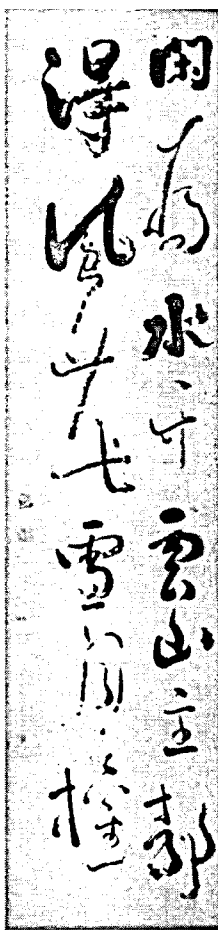 閑為水竹雲山主靜
得風花雪月權